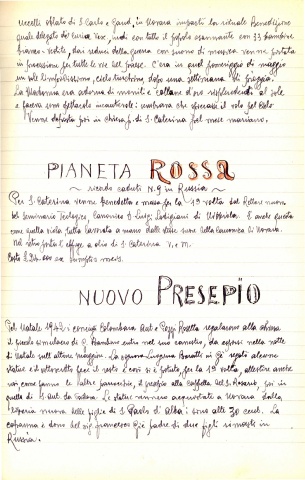 Vecelli oblato di S. Carlo e Gaud. in Novara impartì la rituale Benedizione
quale delegato dei Curia Vesc. indi con tutto il popolo osannante con 33 bambine
bianco-vestite, dai reduci della guerra con suono di musica venne portata
in processione per tutte le vie del paese. C'era in quel pomeriggio di maggio
un sole limpidissimo, cielo turchino dopo una settimana di pioggia.
La Madonna era adorna di monili e collane d'oro risplendenti al sole
e faceva uno spettacolo incantevole: sembrava che spiccasse il volo pel Cielo
Venne deposta poi in chiesa p. di S. Caterina pel mese mariano.
PIANETA ROSSA
~ ricordo caduti N. 9 in Russia ~
Per S. Caterina venne benedetta e messa per la 1ª volta dal Rettore nuovo
del Seminario Teologico Canonico D. Luigi Lodigiani di Vibbiola. È anche questa
come quella viola tutta lavorata a mano dalle stesse suore della Canonica di Novara.
Nel retro porta l'effige a olio di S. Caterina V. e M.
Costo £ 24.000 ex complete mess.
NUOVO PRESEPIO
Pel Natale 1948 i coniugi Colombara Ant. e Pozzi Rosetta regalarono alla chiesa
il piccolo simulacro di G. Bambino entro nel suo cornetto, da esporsi nella notte
di Natale sull'altare maggiore. La signora Luigina Baratti ne ha regalato alcune
statue ed offerette fece il resto e così si è potuto, per la 1ª volta, allestire anche
noi come fanno le altre parrocchie, il presepio alla Cappella del S. Rosario, poi in
quella di S. Ant. da Padova. Le statue vennero acquistate a Novara dalla
libreria nuova delle figlie di S. Paolo d'Alba: sono alte 30 cent. La
capanna è dono del sig. Francesco già padre di due figli rimasti in
Russia.